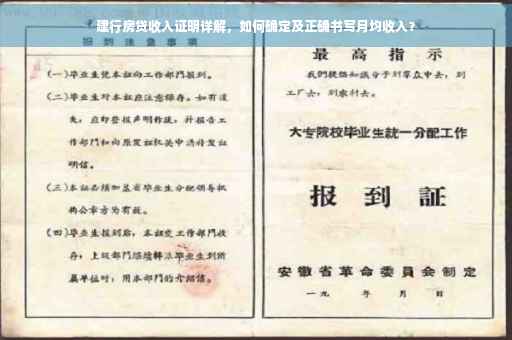 建行房贷收入证明详解，如何确定及正确书写月均收入？
报到注意事项
(一)毕业生凭本证向工作部门报到。
(二)毕业生对本证应注意保存。如有遗
失，应即登报声明作废，并报告工
作部门和向原发证机关申请补发证
明信。
(三)本证必须加盖省毕业生分配领导机
构公章方为有效。
(四)毕业生报到后，本证交工作部门收
存；上级部门继续转派毕业生到所
属单位时，用本部门的介绍信。
最高指示
我们提倡知识分子到群众中去，到
工厂去，到农村去。
大专院校毕业生统一分配工作
报到証
安徽省革命委員会制定
一九 年 月 日